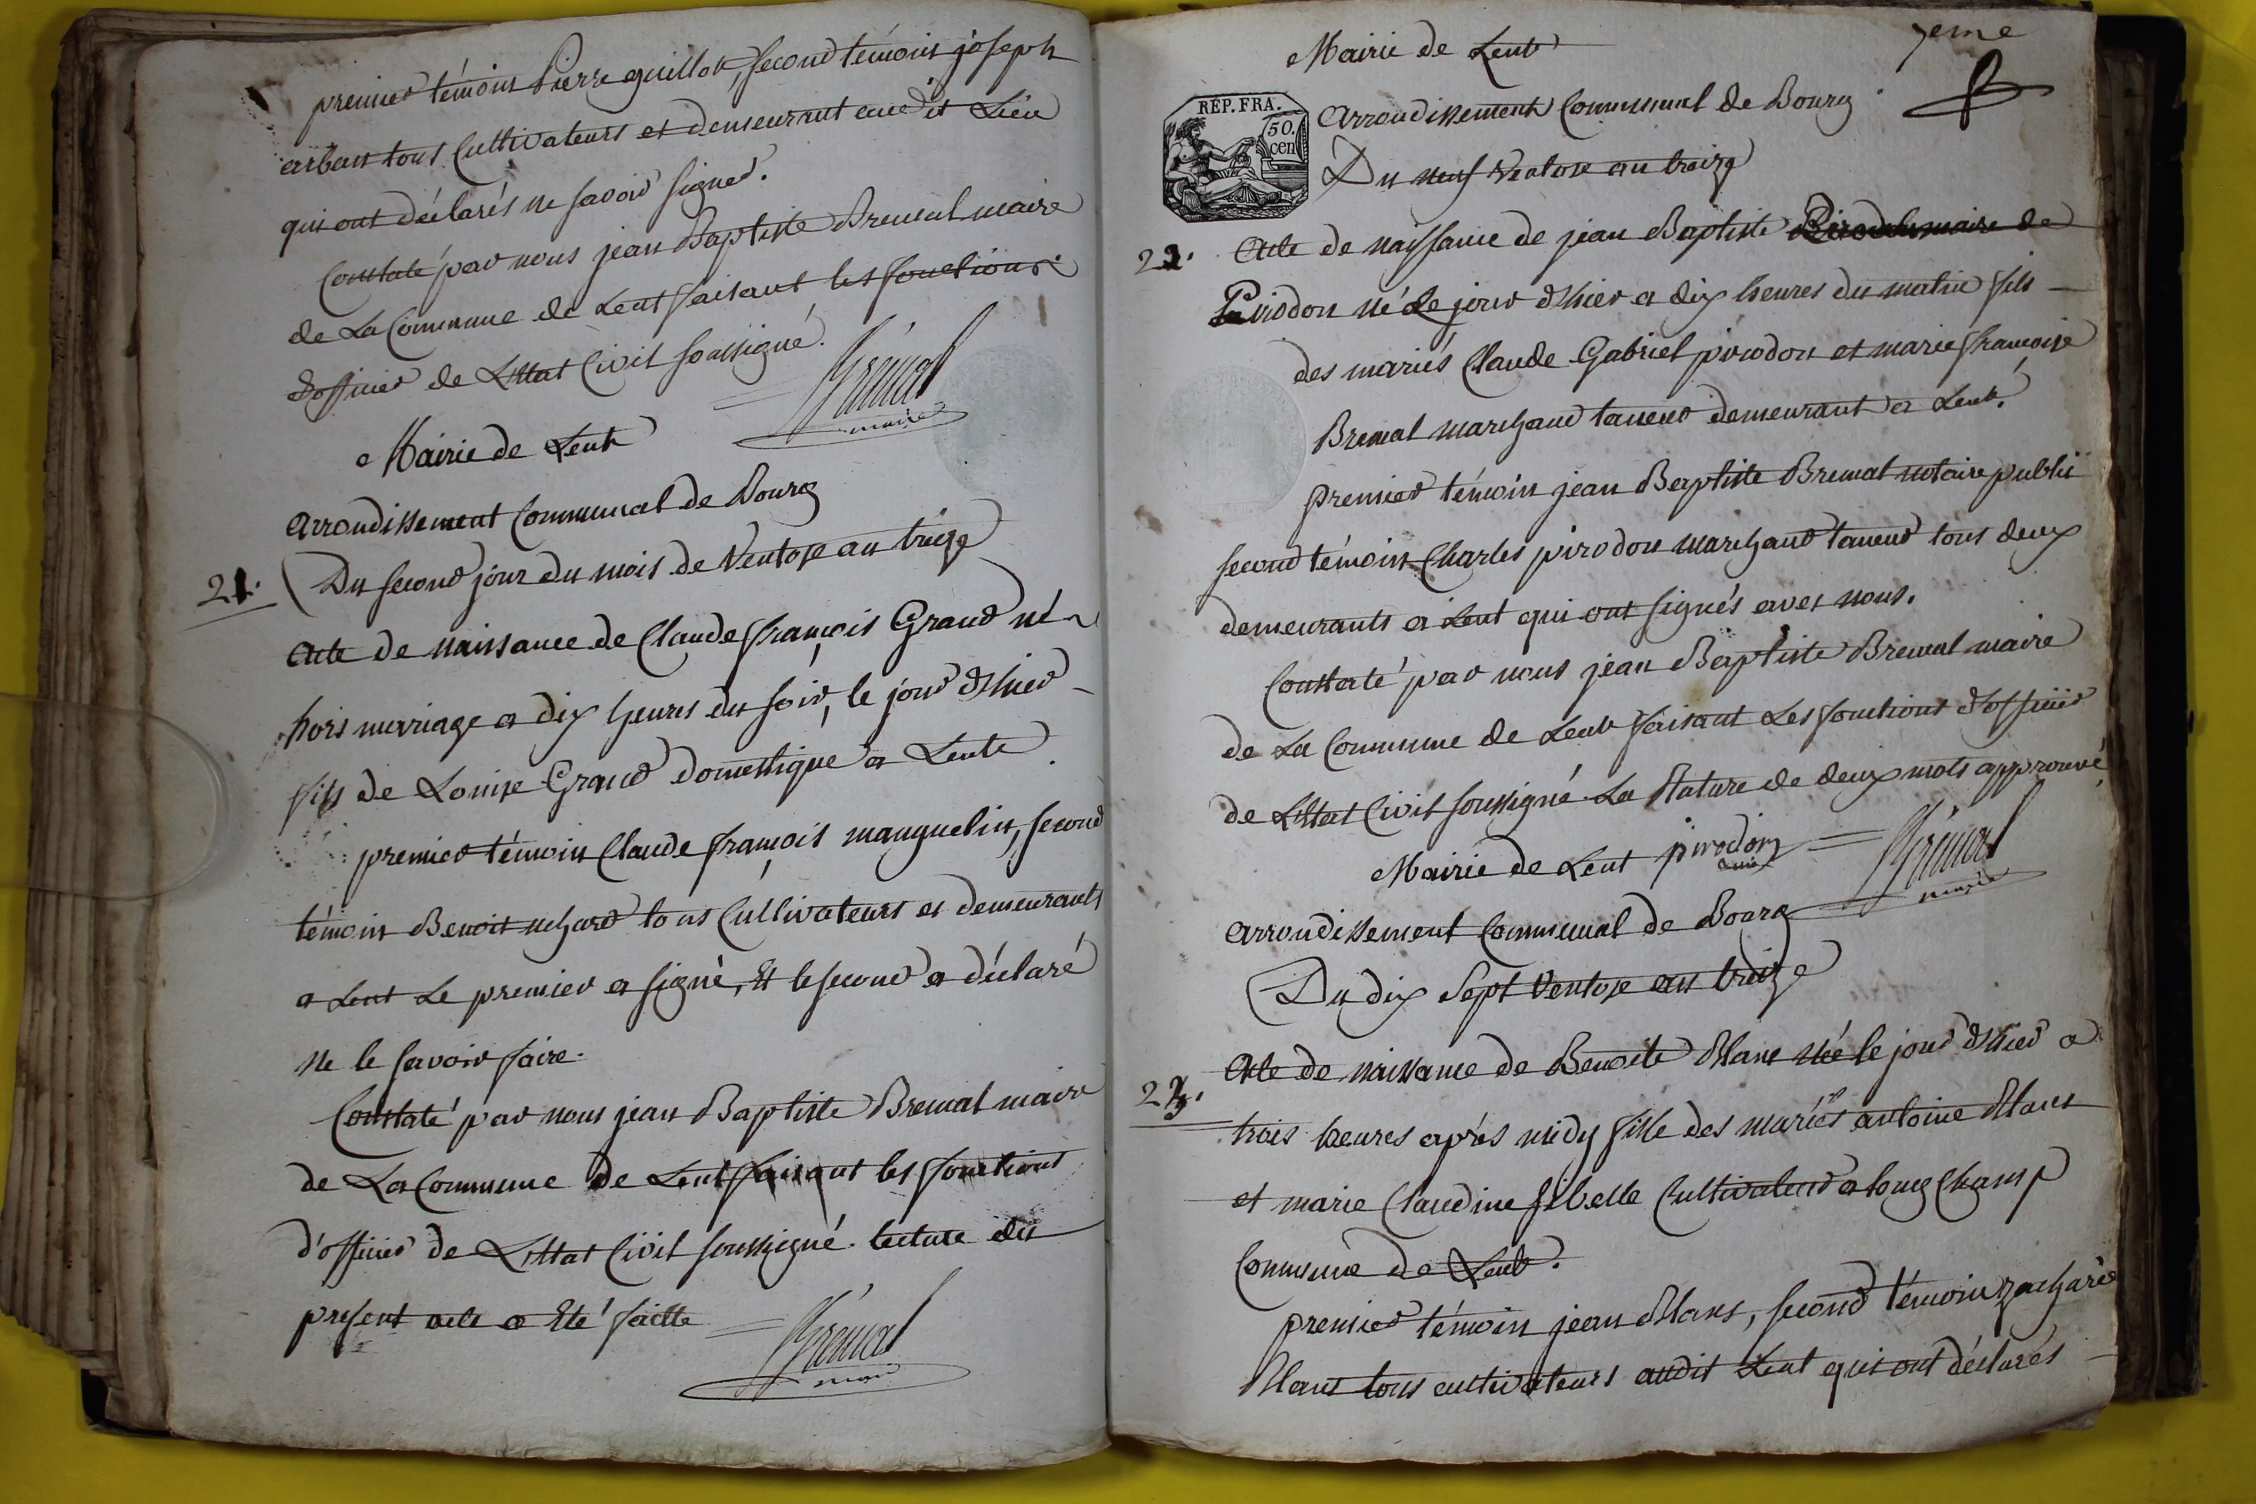 premier témoin Pierre guillot, second témoin joseph
arban tous Cultivateurs et demeurant audit Lieu
qui ont déclarés ne savoir signer.
Constaté par nous jean Baptiste Brenial maire
de La Commune de Lent faisant les fonctions
d'officier de L'Etat Civil soussigné.
Brénial
maire
Mairie de Lent
arrondissement Communal de Bourg
21.
Du second jour du mois de Ventose an treize
Acte de naissance de Claude françois Grand né
hors mariage a dix heures du soir, le jour d'hier
fils de Louise Grand domestique a Lent
premier témoin Claude françois manguelin, second
témoin Benoit tous Cultivateurs et demeurants
a Lent Le premier a signé, Et le second a déclaré
ne le savoir faire.
Constaté par nous jean Baptiste Brenial maire
de La Commune de Lent faisant les fonctions
d'officier de L'Etat Civil soussigné. lecture du
present acte a Eté faitte
Brénial
maire
7eme
Mairie de Lent
REP. FRA.
50.
cen
arrondissement Communal de Bourg
Du neuf Ventose an treize
22.
Acte de naissance de jean Baptiste
Pirodon né Le jour d'hier a dix heures du matin fils
des mariés Claude Gabriel pirodon et marie françoise
Brenial marchand taneur demeurant a Lent.
premier témoin jean Baptiste Brenial notaire public
second témoin Charles pirodon marchand taneur tous deux
demeurants a Lent qui ont signés avec nous.
Constaté par nous jean Baptiste Brenial maire
de La Commune de Lent faisant Les fonctions d'officier
de L'Etat Civil soussigné. La Rature de deux mots approuvé
pirodon
Brénial
maire
Mairie de Lent
arrondissement Communal de Bourg
Du dix Sept Ventose an treize
23.
Acte de naissance de Benoite Blanc Née le jour d'hier a
trois heures après midy fille des mariés antoine Blanc
et marie Claudine sibelle Cultivateur a longChamp
Commune de Lent.
premier témoin jean Blanc, second témoin zacharie
Blanc tous cultivateurs audit Lent qui ont déclarés